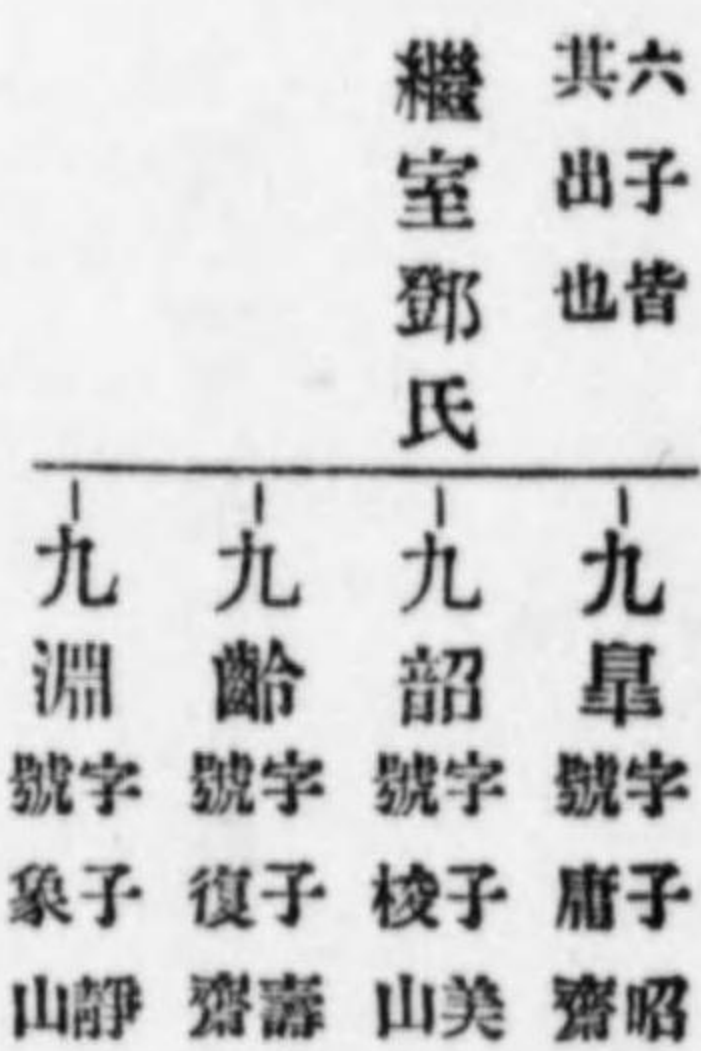 六子皆
其出也
繼室鄧氏
九皐
字子昭
號庸齋
九韶
字子美
號梭山
九齡
字子壽
號復齋
九淵
字子靜
號象山